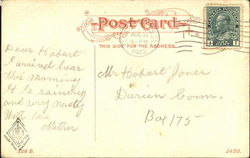 Post Card
THIS SIDE FOR THE ADDRESS
AUG
Dear Hobart
I arrived here
this morning
It is raining
and very nasty
Mother
Mr Hobart Jones
Darien Conn.
Box 175